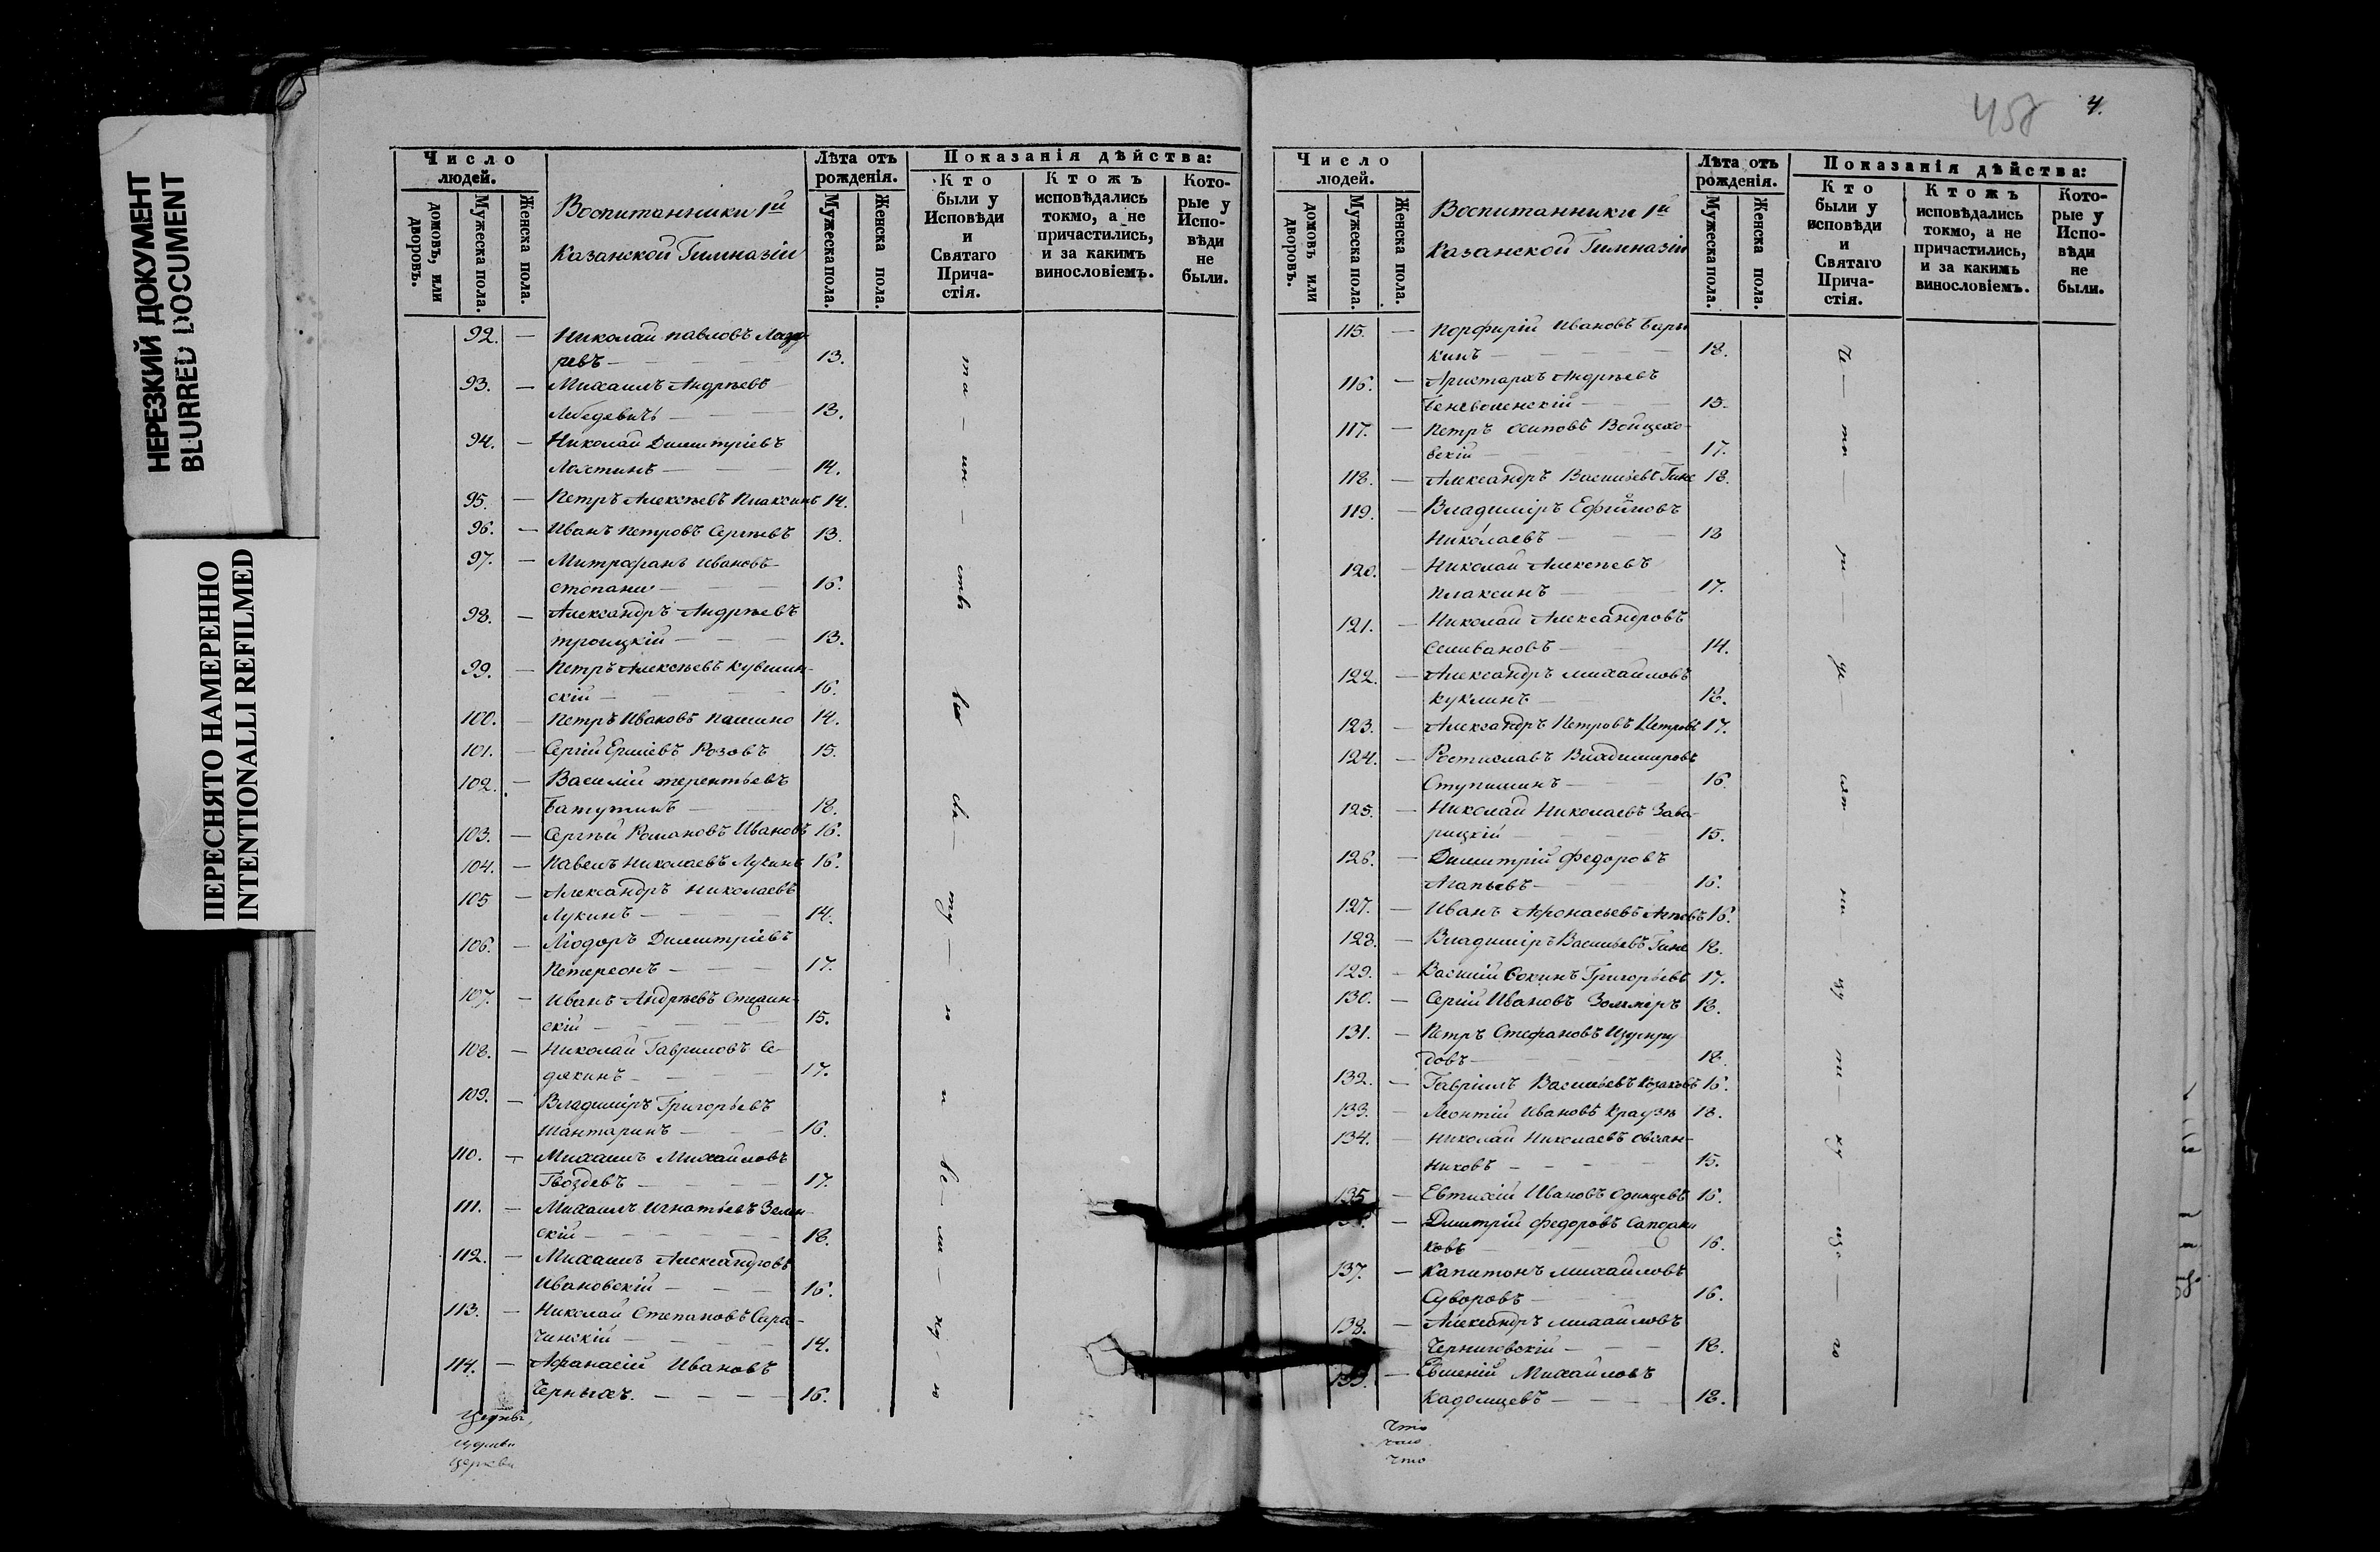 НЕРЕЗКИЙ ДОКУМЕНТ
BLURRED DOCUMENT
ПЕРЕСНЯТО НАМЕРЕННО
INTENTIONALLI REFILMED
Число людей.
домовъ, или дворовъ.
Мужеска пола.
Женска пола.
Воспитанники 1й
Казанской Гимназіи
Лѣта отъ рожденія.
Мужеска пола.
Женска пола.
Показанія дѣйства:
Кто были у Исповѣди и Святаго Прича-стія.
Ктожъ исповѣдались токмо, а не причастились, и за какимъ винословіемъ.
Кото-рые у Испо-вѣди не были.
92. — Николай Павловъ Лаза-
ревъ — 13.
93. — Михаилъ Андреевъ
Лебедевичъ — 13.
94. — Николай Димитріевъ
14.
95. — Петръ Алексѣевъ Плаксинъ 14.
96. — Иванъ Петровъ Сергѣевъ 13.
97. — Митрофанъ Ивановъ
Стопани — 16.
98. — Александръ Андреевъ
Троицкій — 13.
99. — Петръ Алексѣевъ Кувшин-
скій — 16.
100. — Петръ Ивановъ Пашино 14.
101. — Сергій Розовъ 15.
102. — Василій Терентьевъ
Батутинъ — 18.
103. — Сергѣй Романовъ Ивановъ 16.
104. — Павелъ Николаевъ Лукинъ 16.
105 — Александръ Николаевъ
Лукинъ — 14.
106. — Ліодоръ Димитріевъ
Петерсонъ — 17.
107. — Иванъ Андреевъ
скій — 15.
108. — Николай Гавриловъ Се-
дякинъ — 17.
109. — Владиміръ Григорьевъ
Шантаринъ — 16.
110. — Михаилъ Михайловъ
Гвоздевъ — 17.
111. — Михаилъ Игнатьевъ Зелен-
скій — 18.
112. — Михаилъ Александровъ
Ивановскій — 16.
113. — Николай Степановъ Сара-
чинскій — 14.
114. — Афанасій Ивановъ
Черныхъ. — 16.
Церкви
церкви
458
4.
Число людей.
домовъ или дворовъ.
Мужеска пола.
Женска пола.
Воспитанники 1й
Казанской Гимназіи
Лѣта отъ рожденія.
Мужеска пола.
Женска пола.
Показанія дѣйства:
Кто были у исповѣди и Святаго Прича-стія.
Ктожъ исповѣдались токмо, а не причастились, и за какимъ винословіемъ.
Кото-рые у Испо-вѣди не были.
115. — Порфирій Ивановъ Бары
кинъ — 18.
116. — Аристархъ Андреевъ
Беневоленскій — 15.
117. — Петръ Осиповъ Войцехо-
вскій — 17.
118. — Александръ Васильевъ Гине 18.
119. — Владиміръ Ефимовъ
Николаевъ — 18
120. — Николай Алексѣевъ
Плаксинъ — 17.
121. — Николай Александровъ
Селивановъ — 14.
122. — Александръ Михайловъ
Куклинъ — 18.
123. — Александръ Петровъ Петровъ 17.
124. — Ростиславъ Владимировъ
Ступишинъ — 16.
125. — Николай Николаевъ Зава-
рицкій — 15.
126. — Димитрій Федоровъ
Агапьевъ — 16.
127. — Иванъ Афонасьевъ 16.
128. — Владиміръ Васильевъ Гине 18.
129. — Василій Сокинъ Григорьевъ 17.
130. — Сергій Ивановъ 18.
131. — Петръ Стефановъ Изумру
довъ — 18.
132. — Гавріилъ Васильевъ Казаковъ 16.
133. — Леонтій Ивановъ Краузе 18.
134. — Николай Николаевъ Овсян-
никовъ — 15.
135 — Евтихій Ивановъ Одинцевъ 16.
— Димитрій Федоровъ Сапожни
ковъ 16.
137. — Капитонъ Михайловъ
Суворовъ — 16.
138. — Александръ Михайловъ
Черниговскій — 18.
139. — Евгеній Михайловъ
Кадомцевъ — 18.
Что
что